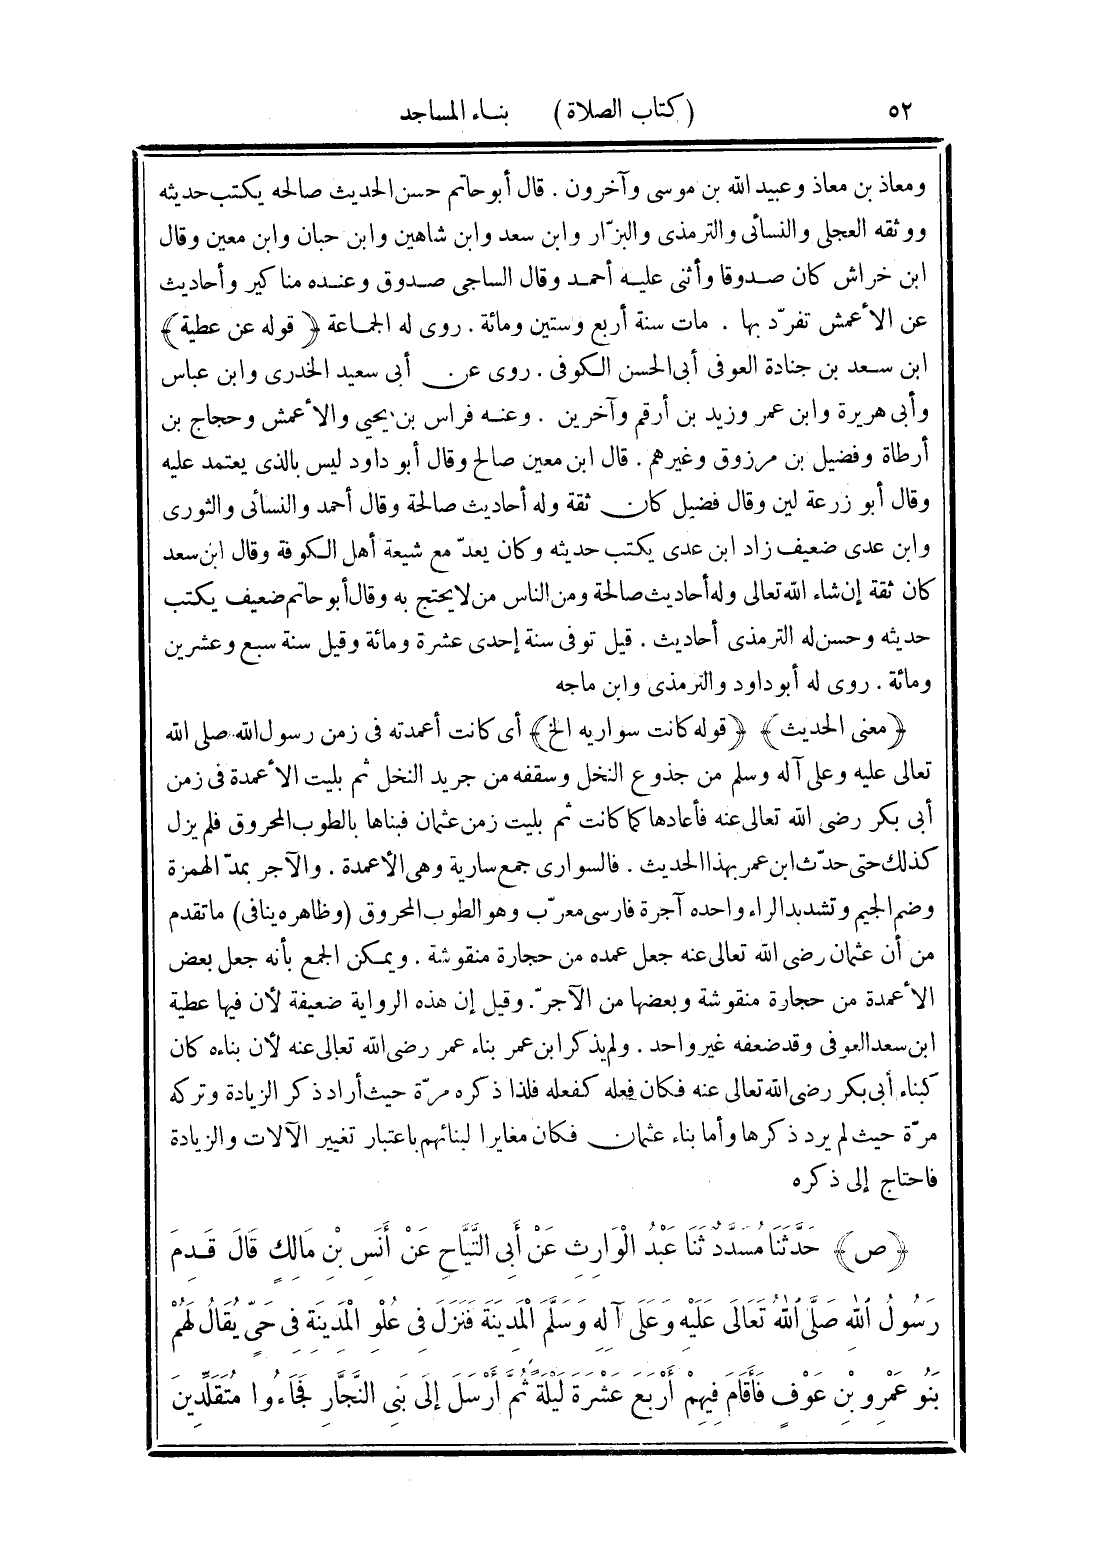 ٥٢ (كتاب الصلاة) بناء المساجد
ومعاذ بن معاذ وعبيد الله بن موسى وآخرون . قال أبوحاتم حسن الحديث صالحه يكتب حديثه
ووثقه العجلى والنسائى والترمذى والبزّار وابن سعد وابن شاهين وابن حبان وابن معين وقال
ابن خراش كان صدوقا وأثنى عليه أحمد وقال الساجى صدوق وعنده مناكير وأحاديث
عن الأعمش تفرّد بها . مات سنة أربع وستين ومائة . روى له الجماعة ﴿ قوله عن عطية﴾
ابن سعد بن جنادة العوفى أبى الحسن الكوفى . روى عن أبى سعيد الخدرى وابن عباس
وأبى هريرة وابن عمر وزيد بن أرقم وآخرين . وعنه فراس بن يحيي والأعمش وحجاج بن
أرطاة وفضيل بن مرزوق وغيرهم . قال ابن معين صالح وقال أبو داود ليس بالذى يعتمد عليه
وقال أبو زرعة لين وقال فضيل كان ثقة وله أحاديث صالحة وقال أحمد والنسائى والثورى
وابن عدى ضعيف زاد ابن عدى يكتب حديثه وكان يعدّ مع شيعة أهل الكوفة وقال ابن سعد
كان ثقة إن شاء الله تعالى وله أحاديث صالحة ومن الناس من لا يحتج به وقال أبوحاتم ضعيف يكتب
حديثه وحسن له الترمذى أحاديث . قيل توفى سنة إحدى عشرة ومائة وقيل سنة سبع وعشرين
ومائة . روى له أبوداود والترمذى وابن ماجه
﴿معنى الحديث﴾ ﴿قوله كانت سواريه الخ﴾ أى كانت أعمدته فى زمن رسول الله صلى الله
تعالى عليه وعلى آله وسلم من جذوع النخل وسقفه من جريد النخل ثم بليت الأعمدة فى زمن
أبى بكر رضى الله تعالى عنه فأعادها كما كانت ثم بليت زمن عثمان فبناها بالطوب المحروق فلم يزل
كذلك حتى حدّث ابن عمر بهذا الحديث . فالسوارى جمع سارية وهى الأعمدة . والآجر بمدّ الهمزة
وضم الجيم وتشديد الراء واحده آجرة فارسى معرّب وهو الطوب المحروق (وظاهره ينافى) ما تقدم
من أن عثمان رضى الله تعالى عنه جعل عمده من حجارة منقوشة . ويمكن الجمع بأنه جعل بعض
الأعمدة من حجارة منقوشة وبعضها من الآجرّ. وقيل إن هذه الرواية ضعيفة لأن فيها عطية
ابن سعد العوفى وقد ضعفه غير واحد . ولم يذكر ابن عمر بناء عمر رضى الله تعالى عنه لأن بناءه كان
كبناء أبى بكر رضى الله تعالى عنه فكان فعله كفعله فلذا ذكره مرّة حيث أراد ذكر الزيادة وتركه
مرّة حيث لم يرد ذكرها وأما بناء عثمان فكان مغايرا لبنائهم باعتبار تغيير الآلات والزيادة
فاحتاج إلى ذكره
﴿ص﴾ حَدَّثَنَا مُسَدَّدٌ ثَنَا عَبْدُ الْوَارِثِ عَنْ أَبِى التَّيَّاحِ عَنْ أَنَسِ بْنِ مَالِكٍ قَالَ قَدِمَ
رَسُولُ اللهِ صَلَّى اللهُ تَعَالَى عَلَيْهِ وَعَلَى آلِهِ وَسَلَّمَ الْمَدِينَةَ فَنَزَلَ فِى عُلْوِ الْمَدِينَةِ فِى حَىٍّ يُقَالُ لَهُمْ
بَنُو عَمْرِو بْنِ عَوْفٍ فَأَقَامَ فِيهِمْ أَرْبَعَ عَشْرَةَ لَيْلَةً ثُمَّ أَرْسَلَ إِلَى بَنِى النَّجَّارِ فَجَاءُوا مُتَقَلِّدِينَ